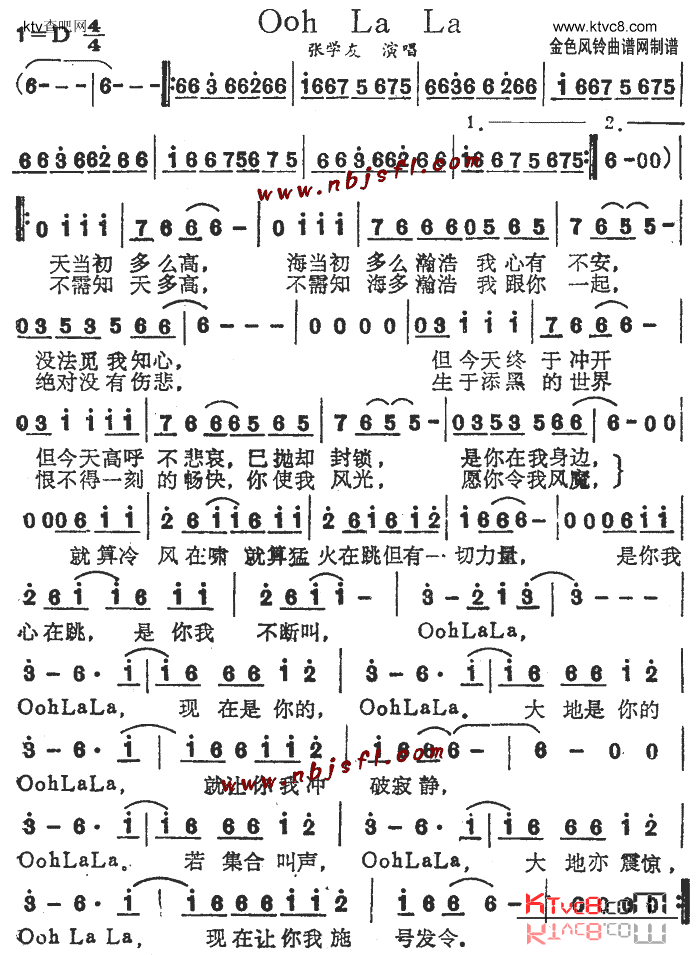 ktv查吧网
Ooh La La
www.ktvc8.com
1=D 4/4
张学友 演唱
金色风铃曲谱网制谱
(6--- | 6---) ‖: 663 66266 | 1667 5 675 | 6636 6 266 | 1 667 5 675
1. 2.
663 66266 | 1 66756 7 5 | 663 66266 | 166 7 5 675 :‖ 6-00)
www.nbjsfl.com
‖: 0 1 1 1 | 7 6 6 6- | 0 1 1 1 | 7 6 6 0 5 6 5 | 7 6 5 5-
天当初 多么高, 海当初 多么瀚浩 我心有 不安,
不需知 天多高, 不需知 海多瀚浩 我跟你 一起,
0 3 5 3 5 6 6 | 6--- | 0 0 0 0 | 0 3 1 1 1 | 7 6 6 6-
没法觅我知心, 但今天终于冲开
绝对没有伤悲, 生于添黑的世界
0 3 1 1 1 1 | 7 6 6 6 5 6 5 | 7 6 5 5- | 0 3 5 3 5 6 6 | 6-00
但今天高呼 不悲哀, 已抛却 封锁, 是你在我身边,
恨不得一刻 的畅快, 你使我 风光, 愿你令我风魔,
0 0 0 6 1 1 | 2 6 1 1 1 6 1 1 | 2 6 1 6 1 6 1 2 | 1 6 6 6- | 0 0 0 6 1 1
就算冷 风在啸 就算猛 火在跳但有一切力量, 是你我
2 6 1 1 6 1 1 | 2 6 1 1- | 3-2 1 3 | 3---
心在跳, 是你我 不断叫, OohLaLa,
3-6· 1 | 1 6 6 6 6 1 2 | 3-6· 1 | 1 6 6 6 6 1 2
OohLaLa, 现在是你的, OohLaLa。 大地是你的
3-6· 1 | 1 6 6 6 1 1 2 | 1 6 6 6- | 6-0 0
www.nbjsfl.com
OohLaLa, 就让你我冲 破寂静,
3-6· 1 | 1 6 6 6 6 1 2 | 3-6· 1 | 1 6 6 6 6 1 2
OohLaLa。 若集合叫声, OohLaLa, 大地亦震惊,
3-6· 1 | 1 6 6 6 1 1 2 | 1 6 6 6- | 0 0 0 0 :‖
KTvc8.com
Ooh La La, 现在让你我施 号发令。